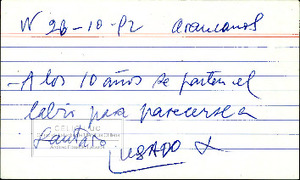 N 26-10-92 Araucanos
-A los 10 años se parten el
labio para parecerse a
Lautaro
USADO